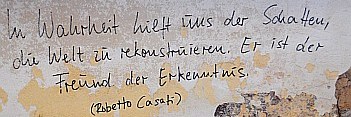 In Wahrheit hilft uns der Schatten,
die Welt zu rekonstruieren. Er ist der
Freund der Erkenntnis.
(Roberto Casati)